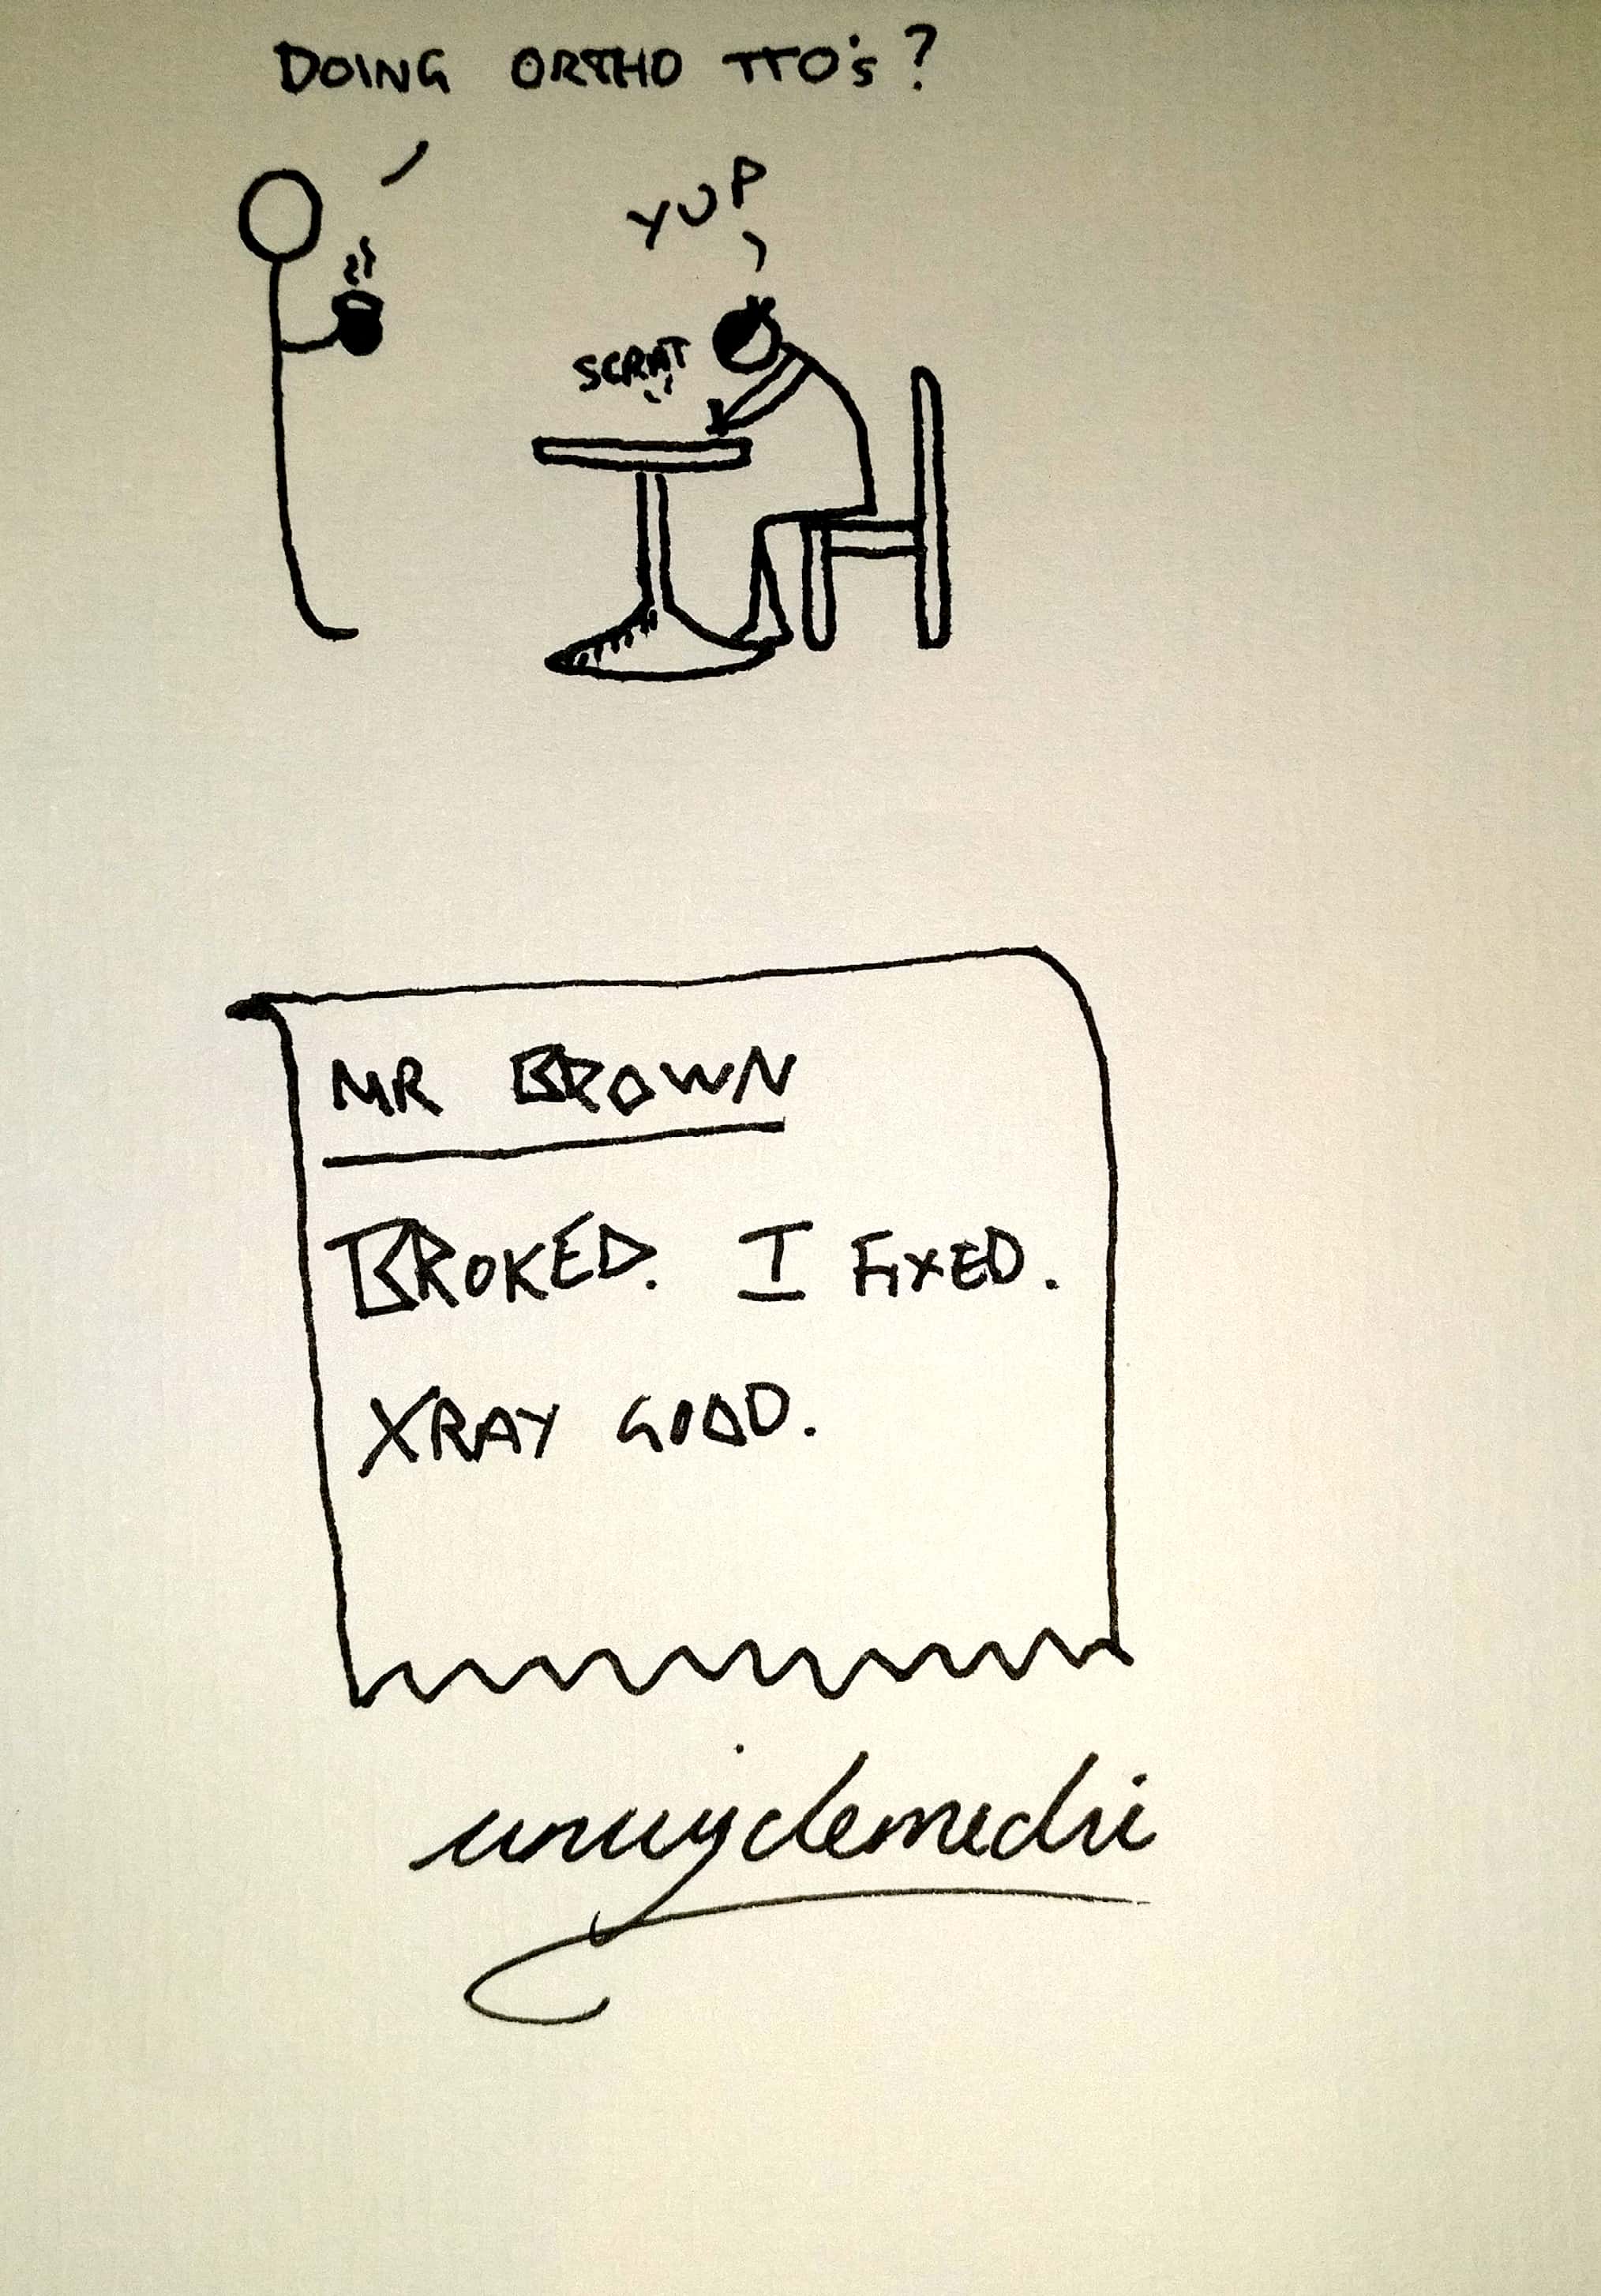 DOING ORTHO TTO's?
YUP
SCRAT
MR BROWN
BROKED. I FIXED.
XRAY GOOD.
unicyclemedic